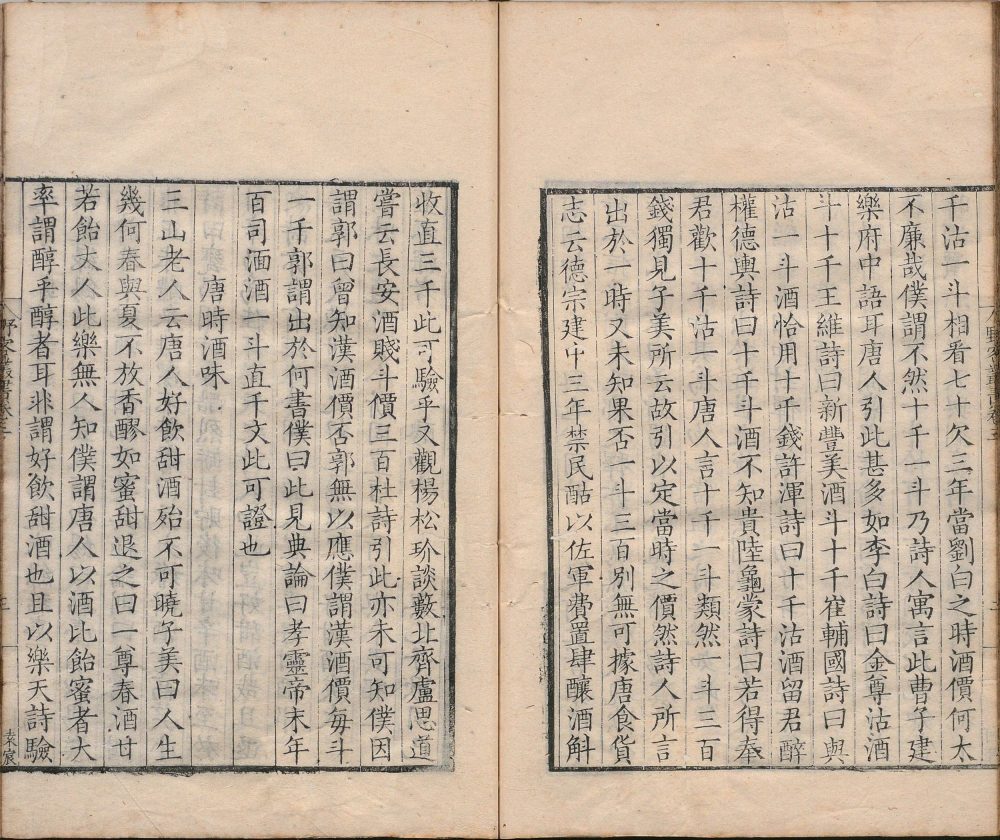 千沽一斗相看七十欠三年當劉白之時酒價何太
不廉哉僕謂不然十千一斗乃詩人寓言此曹子建
樂府中語耳唐人引此甚多如李白詩曰金尊沽酒
斗十千王維詩曰新豐美酒斗十千崔輔國詩曰與
沽一斗酒恰用十千錢許渾詩曰十千沽酒留君醉
權德輿詩曰十千斗酒不知貴陸龜蒙詩曰若得奉
君歡十千沽一斗唐人言十千一斗類然一斗三百
錢獨見子美所云故引以定當時之價然詩人所言
出於一時又未知果否一斗三百別無可據唐食貨
志云德宗建中三年禁民酤以佐軍費置肆釀酒斛
收直三千此可驗乎又觀楊松玠談藪北齊盧思道
嘗云長安酒賤斗價三百杜詩引此亦未可知僕因
謂郭曰曾知漢酒價否郭無以應僕謂漢酒價每斗
一千郭謂出於何書僕曰此見典論曰孝靈帝末年
百司湎酒一斗直千文此可證也
唐時酒味
三山老人云唐人好飲甜酒殆不可曉子美曰人生
幾何春與夏不放香醪如蜜甜退之曰一尊春酒甘
若飴丈人此樂無人知僕謂唐人以酒比飴蜜者大
率謂醇乎醇者耳非謂好飲甜酒也且以樂天詩驗
野客叢書卷三
三
袁宸